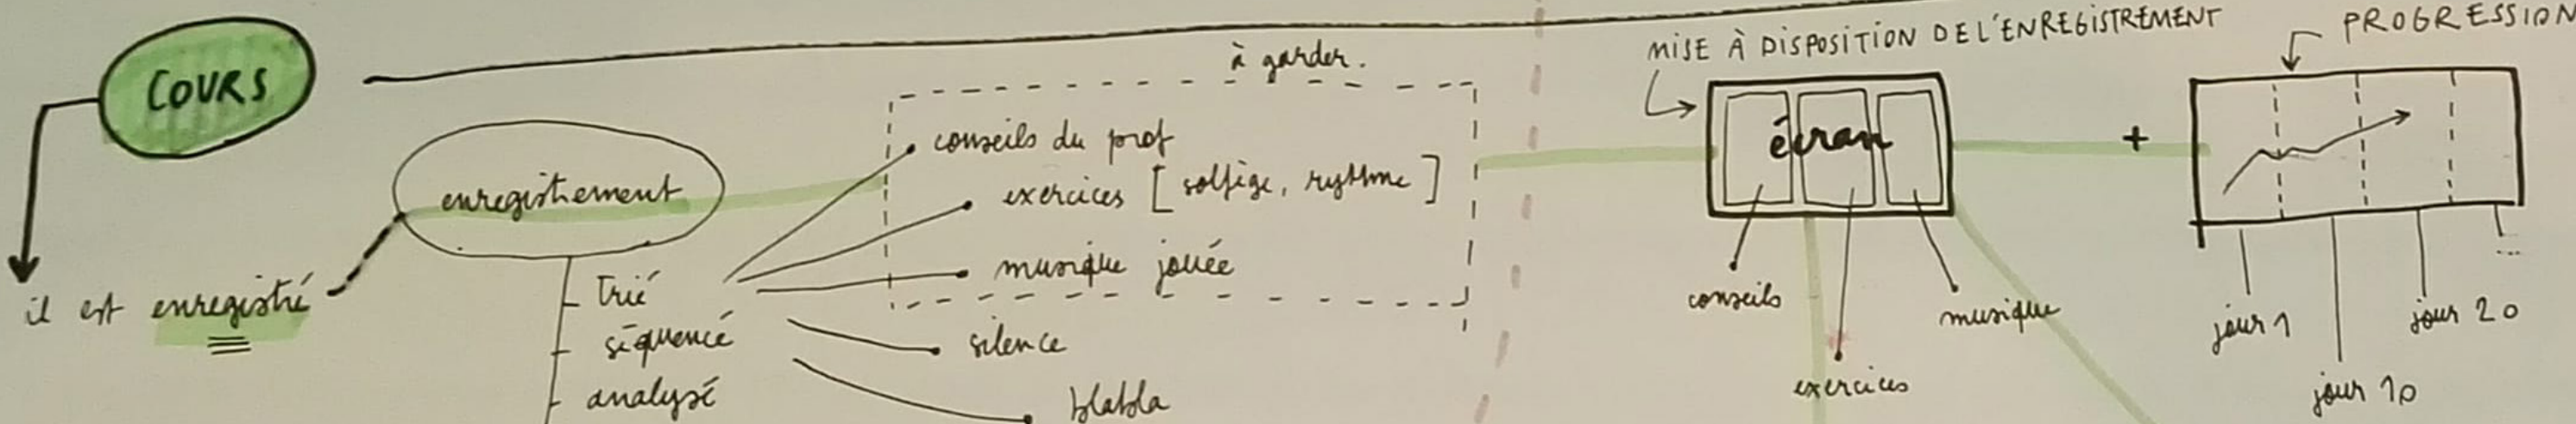 COURS
il est enregistré
enregistrement
trié
séquencé
analysé
à garder.
conseils du prof
exercices [solfège, rythme]
musique jouée
silence
blabla
MISE À DISPOSITION DE L'ENREGISTREMENT
écran
conseils
exercices
musique
+
PROGRESSION
jour 1
jour 10
jour 20
...